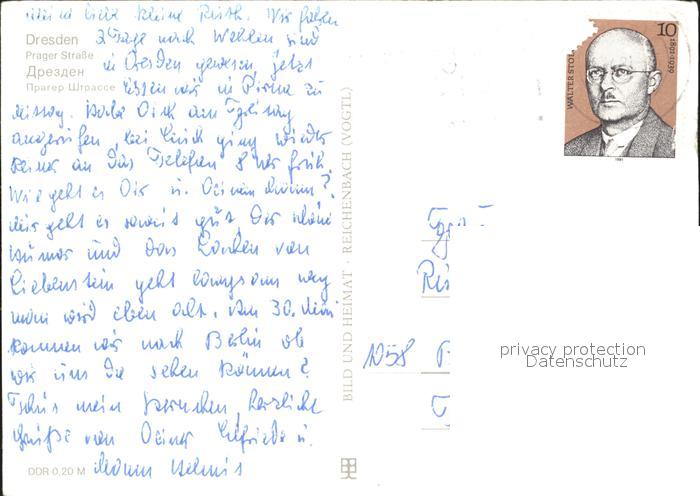 meine liebe kleine Ruth. Wir fuhren
Dresden
Prager Straße
Дрезден
Прагер Штрассе
2 Tage nach Wehlen und
in Dresden gewesen, jetzt
essen wir in Pirna zu
Mittag. Habe Dich am
angerufen, bei Euch ging wieder
keiner an das Telefon 8 Uhr früh.
Wie geht es Dir u. Deinem
mir geht es soweit gut, Der
Humor und das von
Liebenstein geht langsam weg
man wird eben alt. Am 30.
kommen wir nach Berlin ob
wir uns da sehen können?
Tschüs mein herzliche
Grüße von Deiner Elfriede u.
Mann
DDR 0,20 M
BILD UND HEIMAT · REICHENBACH (VOGTL)
WALTER STOE
10
1891-1939
1981
1058
privacy protection
Datenschutz